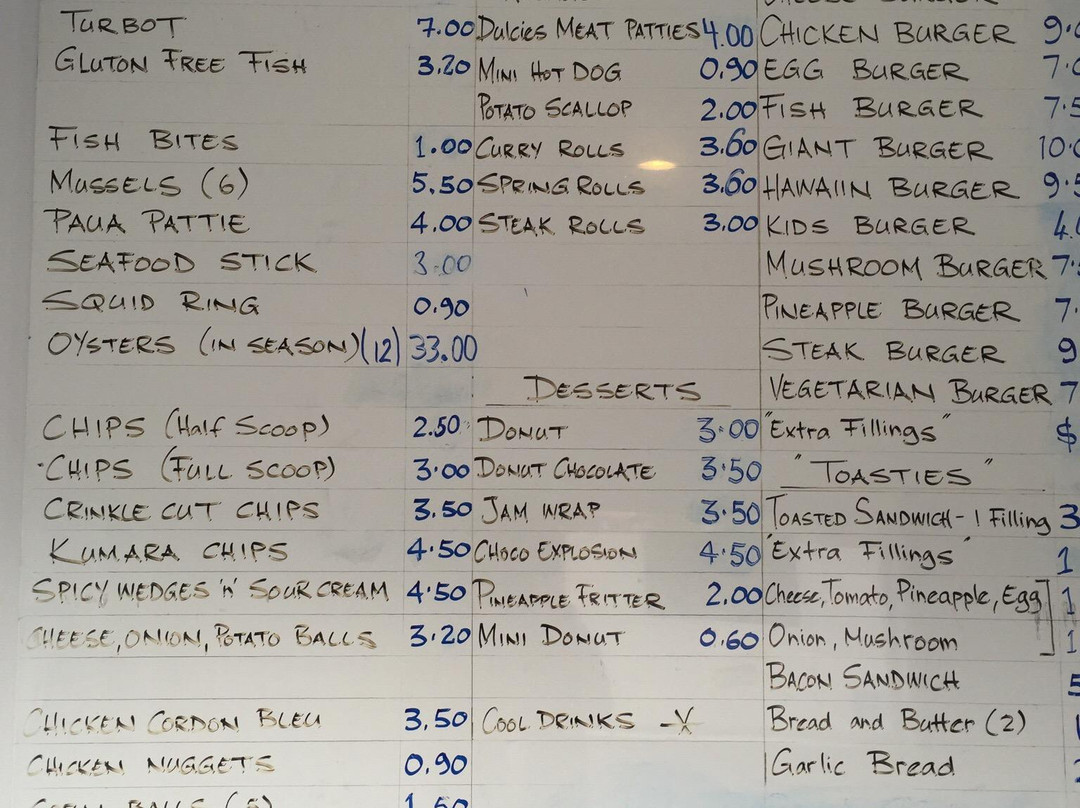 TURBOT 7.00
GLUTON FREE FISH 3.20
FISH BITES 1.00
MUSSELS (6) 5.50
PAUA PATTIE 4.00
SEAFOOD STICK 3.00
SQUID RING 0.90
OYSTERS (IN SEASON)(12) 33.00
CHIPS (Half Scoop) 2.50
CHIPS (FULL SCOOP) 3.00
CRINKLE CUT CHIPS 3.50
KUMARA CHIPS 4.50
SPICY WEDGES 'n' SOUR CREAM 4.50
CHEESE, ONION, POTATO BALLS 3.20
CHICKEN CORDON BLEU 3.50
CHICKEN NUGGETS 0.90
Dulcies MEAT PATTIES 4.00
MINI HOT DOG 0.90
POTATO SCALLOP 2.00
CURRY ROLLS 3.60
SPRING ROLLS 3.60
STEAK ROLLS 3.00
DESSERTS
DONUT 3.00
DONUT CHOCOLATE 3.50
JAM WRAP 3.50
CHOCO EXPLOSION 4.50
PINEAPPLE FRITTER 2.00
MINI DONUT 0.60
COOL DRINKS
CHICKEN BURGER 9.
EGG BURGER 7.
FISH BURGER 7.5
GIANT BURGER 10.
HAWAIIN BURGER 9.5
KIDS BURGER 4.
MUSHROOM BURGER 7.
PINEAPPLE BURGER 7.
STEAK BURGER 9
VEGETARIAN BURGER 7
"Extra Fillings" $
"TOASTIES"
TOASTED SANDWICH - 1 Filling 3
"Extra Fillings" 1
Cheese, Tomato, Pineapple, Egg 1
Onion, Mushroom 1
BACON SANDWICH 5
Bread and Butter (2)
Garlic Bread